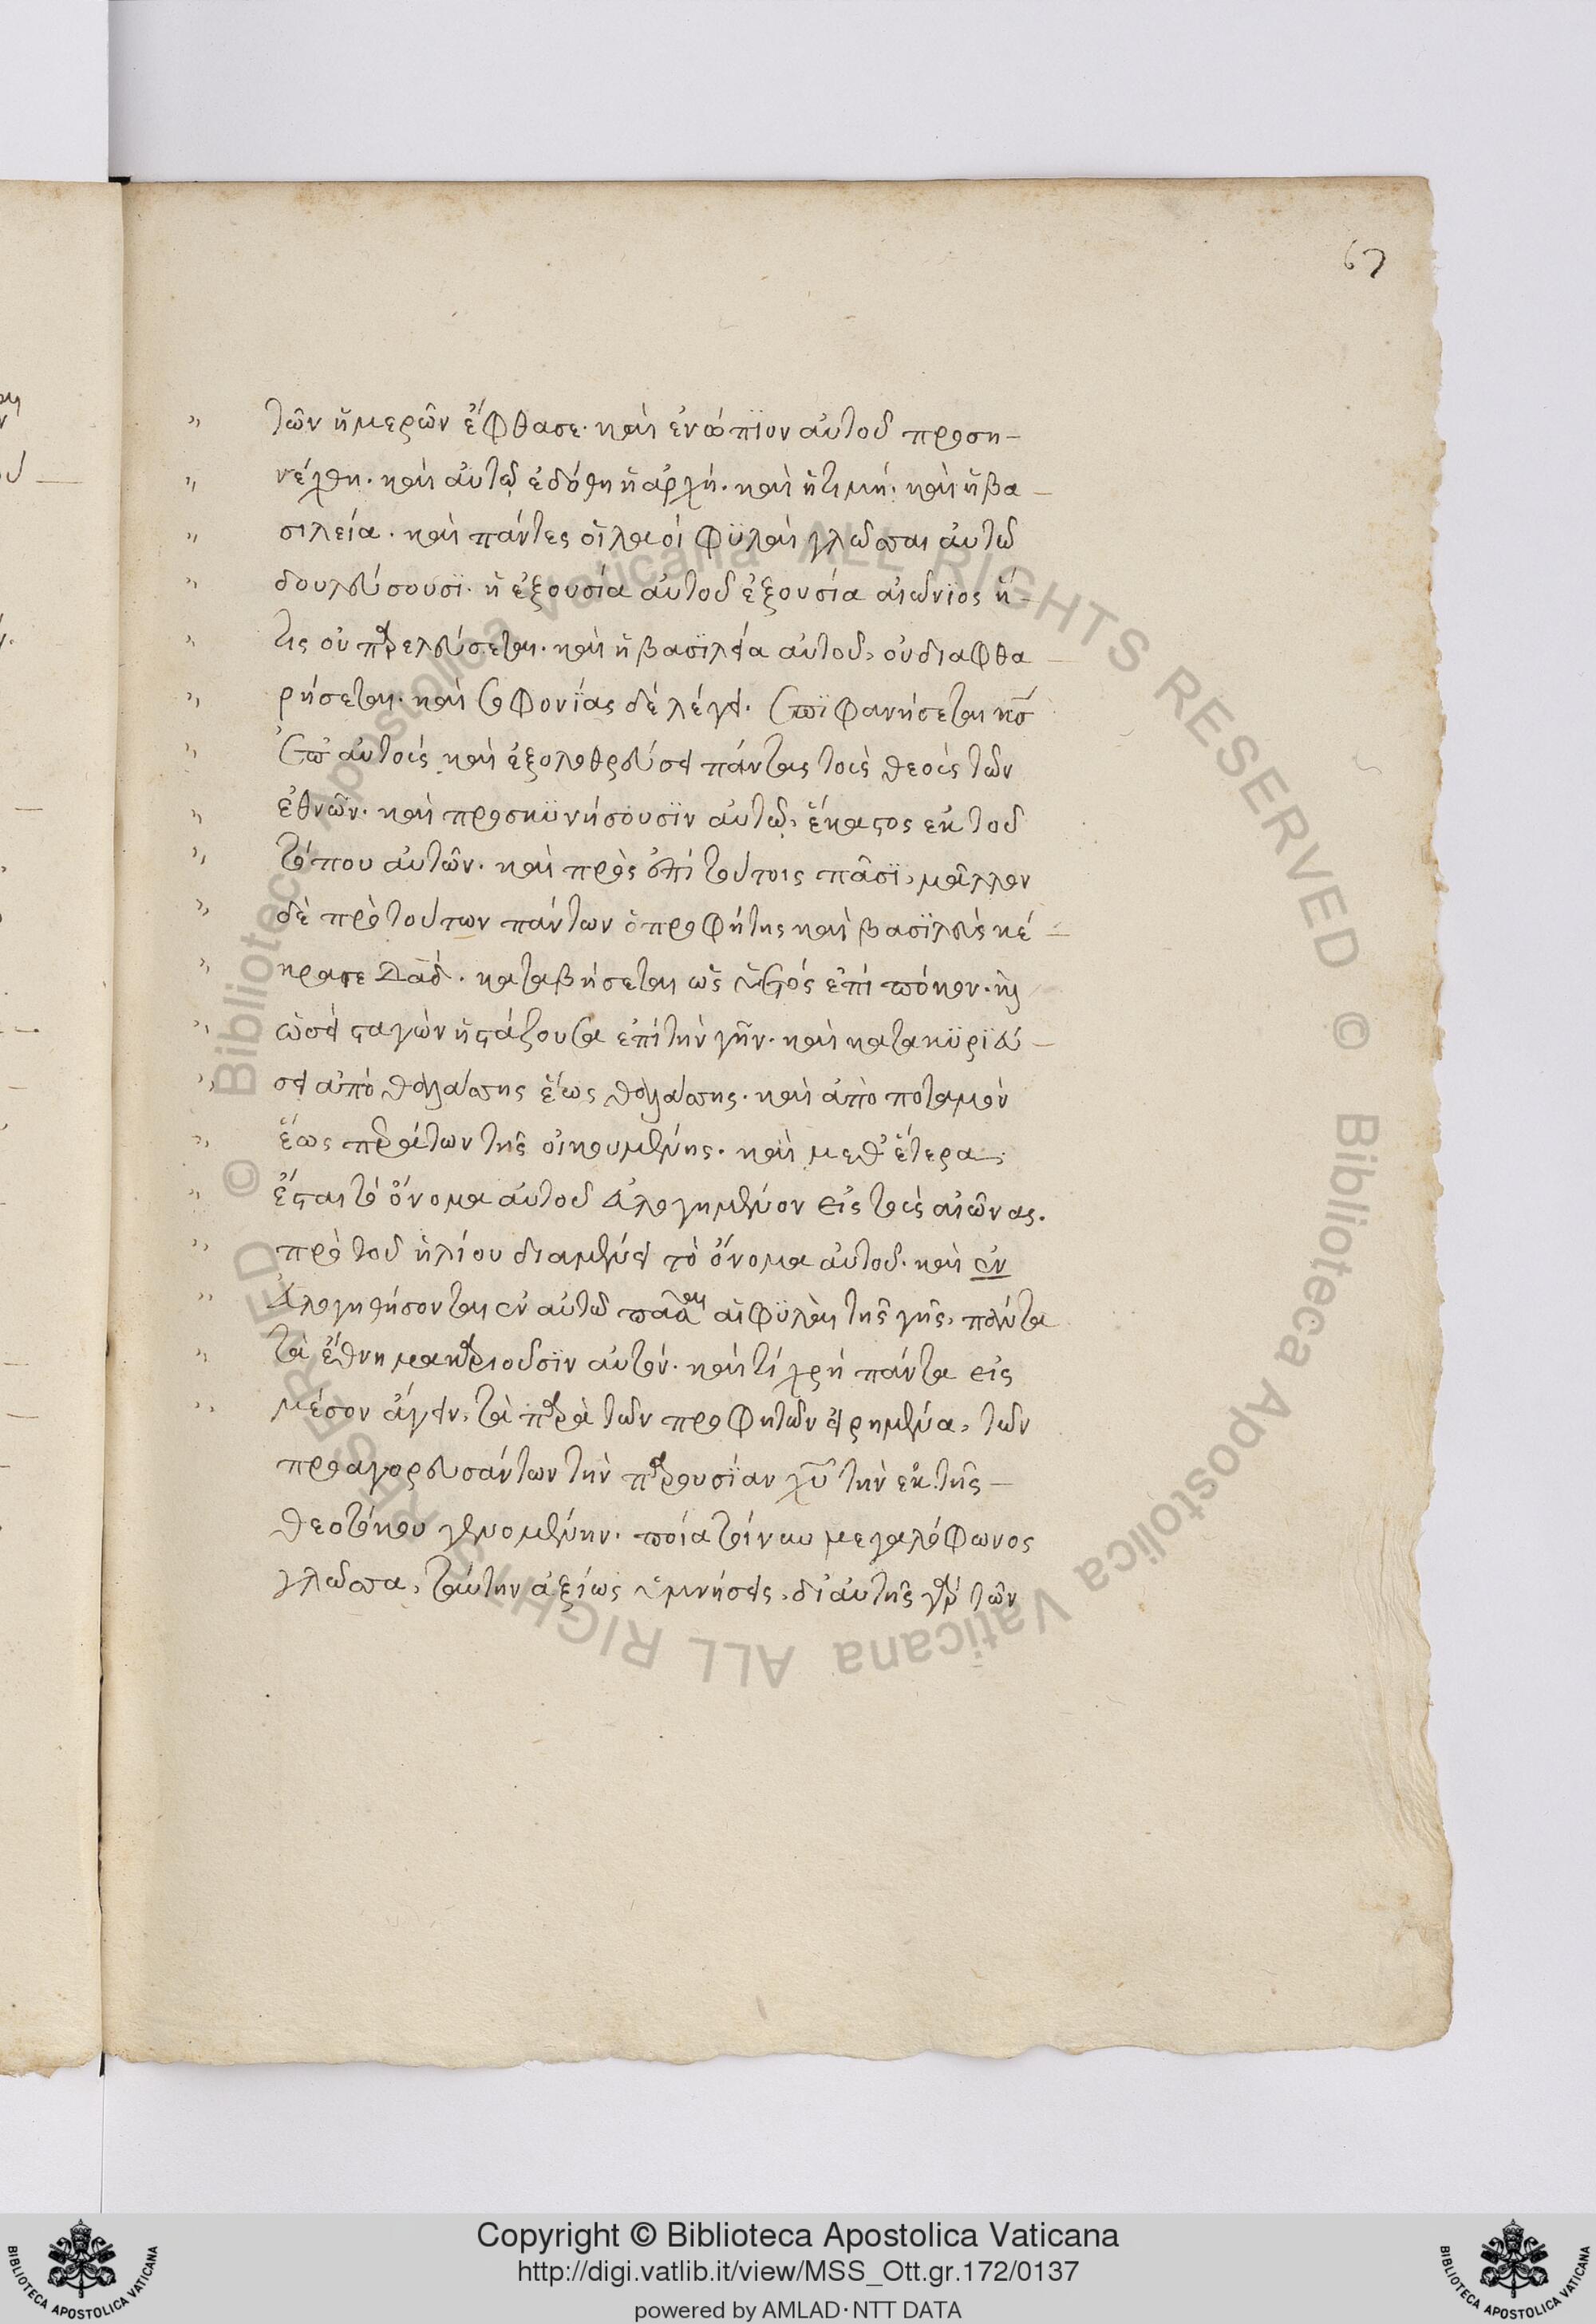 67
τῶν ἡμερῶν ἔφθασε· καὶ ἐνώπϊον αὐτοῦ προση-
νέχθη· καὶ αὐτῷ ἐδόθη ἡ ἀρχή· καὶ ἡ τιμή· καὶ ἡ βα-
σιλεία· καὶ πάντες οἱ λαοί φϋλαὶ γλῶσσαι αὐτῶ
δουλεύσουσϊ· ἡ ἐξουσία αὐτοῦ ἐξουσία αἰώνϊος ἥ-
τις οὐ παρελεύσεται· καὶ ἡ βασϊλεία αὐτοῦ, οὐ διαφθα-
ρήσεται· καὶ σοφονίας δὲ λέγει· ἐπϊφανήσεται κς
ἐπ' αὐτοὺς καὶ ἐξολοθρεύσει πάντας τοὺς θεοὺς τῶν
ἐθνῶν· καὶ προσκϋνήσουσϊν αὐτῷ, ἕκαστος ἐκ τοῦ
τόπου αὐτῶν· καὶ πρὸς ἐπὶ τούτοις πᾶσϊ, μᾶλλον
δὲ πρὸ τούτων πάντων ὁ προφήτης καὶ βασϊλεὺς κέ-
κραγε δαδ· καταβήσεται ὡς ὑετός ἐπὶ πόκον· καὶ
ὡσεὶ σταγὼν ἡ στάζουσα ἐπὶ τὴν γῆν· καὶ κατακϋρϊεύ-
σει ἀπὸ θαλάσσης ἕως θαλάσσης· καὶ ἀπὸ ποταμῶν
ἕως περάτων τῆς οἰκουμένης· καὶ μεθ' ἕτερα,
ἔσται τὸ ὄνομα αὐτοῦ εὐλογημένον εἰς τοὺς αἰῶνας·
πρὸ τοῦ ἡλίου διαμένει τὸ ὄνομα αὐτοῦ· καὶ ἐν
εὐλογηθήσονται ἐν αὐτῶ πᾶσαι αἱ φϋλαὶ τῆς γῆς, πάντα
τὰ ἔθνη μακαριοῦσϊν αὐτόν· καὶ τί χρὴ πάντα εἰς
μέσον ἄγειν, τὰ παρὰ τῶν προφητῶν εἰρημένα, τῶν
προαγορευσάντων τὴν παρουσϊαν χυ τὴν ἐκ τῆς
θεοτόκου γενομένην· ποία τοίνυν μεγαλόφωνος
γλῶσσα, ταύτην ἀξίως ὑμνήσεις, δι' αὐτῆς γὰρ τῶν
Copyright © Biblioteca Apostolica Vaticana
http://digi.vatlib.it/view/MSS_Ott.gr.172/0137
powered by AMLAD·NTT DATA
© Biblioteca Apostolica Vaticana ALL RIGHTS RESERVED
© Biblioteca Apostolica Vaticana ALL RIGHTS RESERVED
BIBLIOTECA APOSTOLICA VATICANA
BIBLIOTECA APOSTOLICA VATICANA